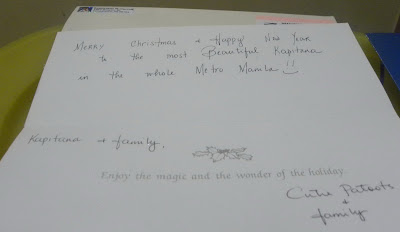 Merry Christmas + Happy New Year
to the most Beautiful Kapitana
in the whole Metro Manila
Kapitana + family,
Enjoy the magic and the wonder of the holiday.
+
family